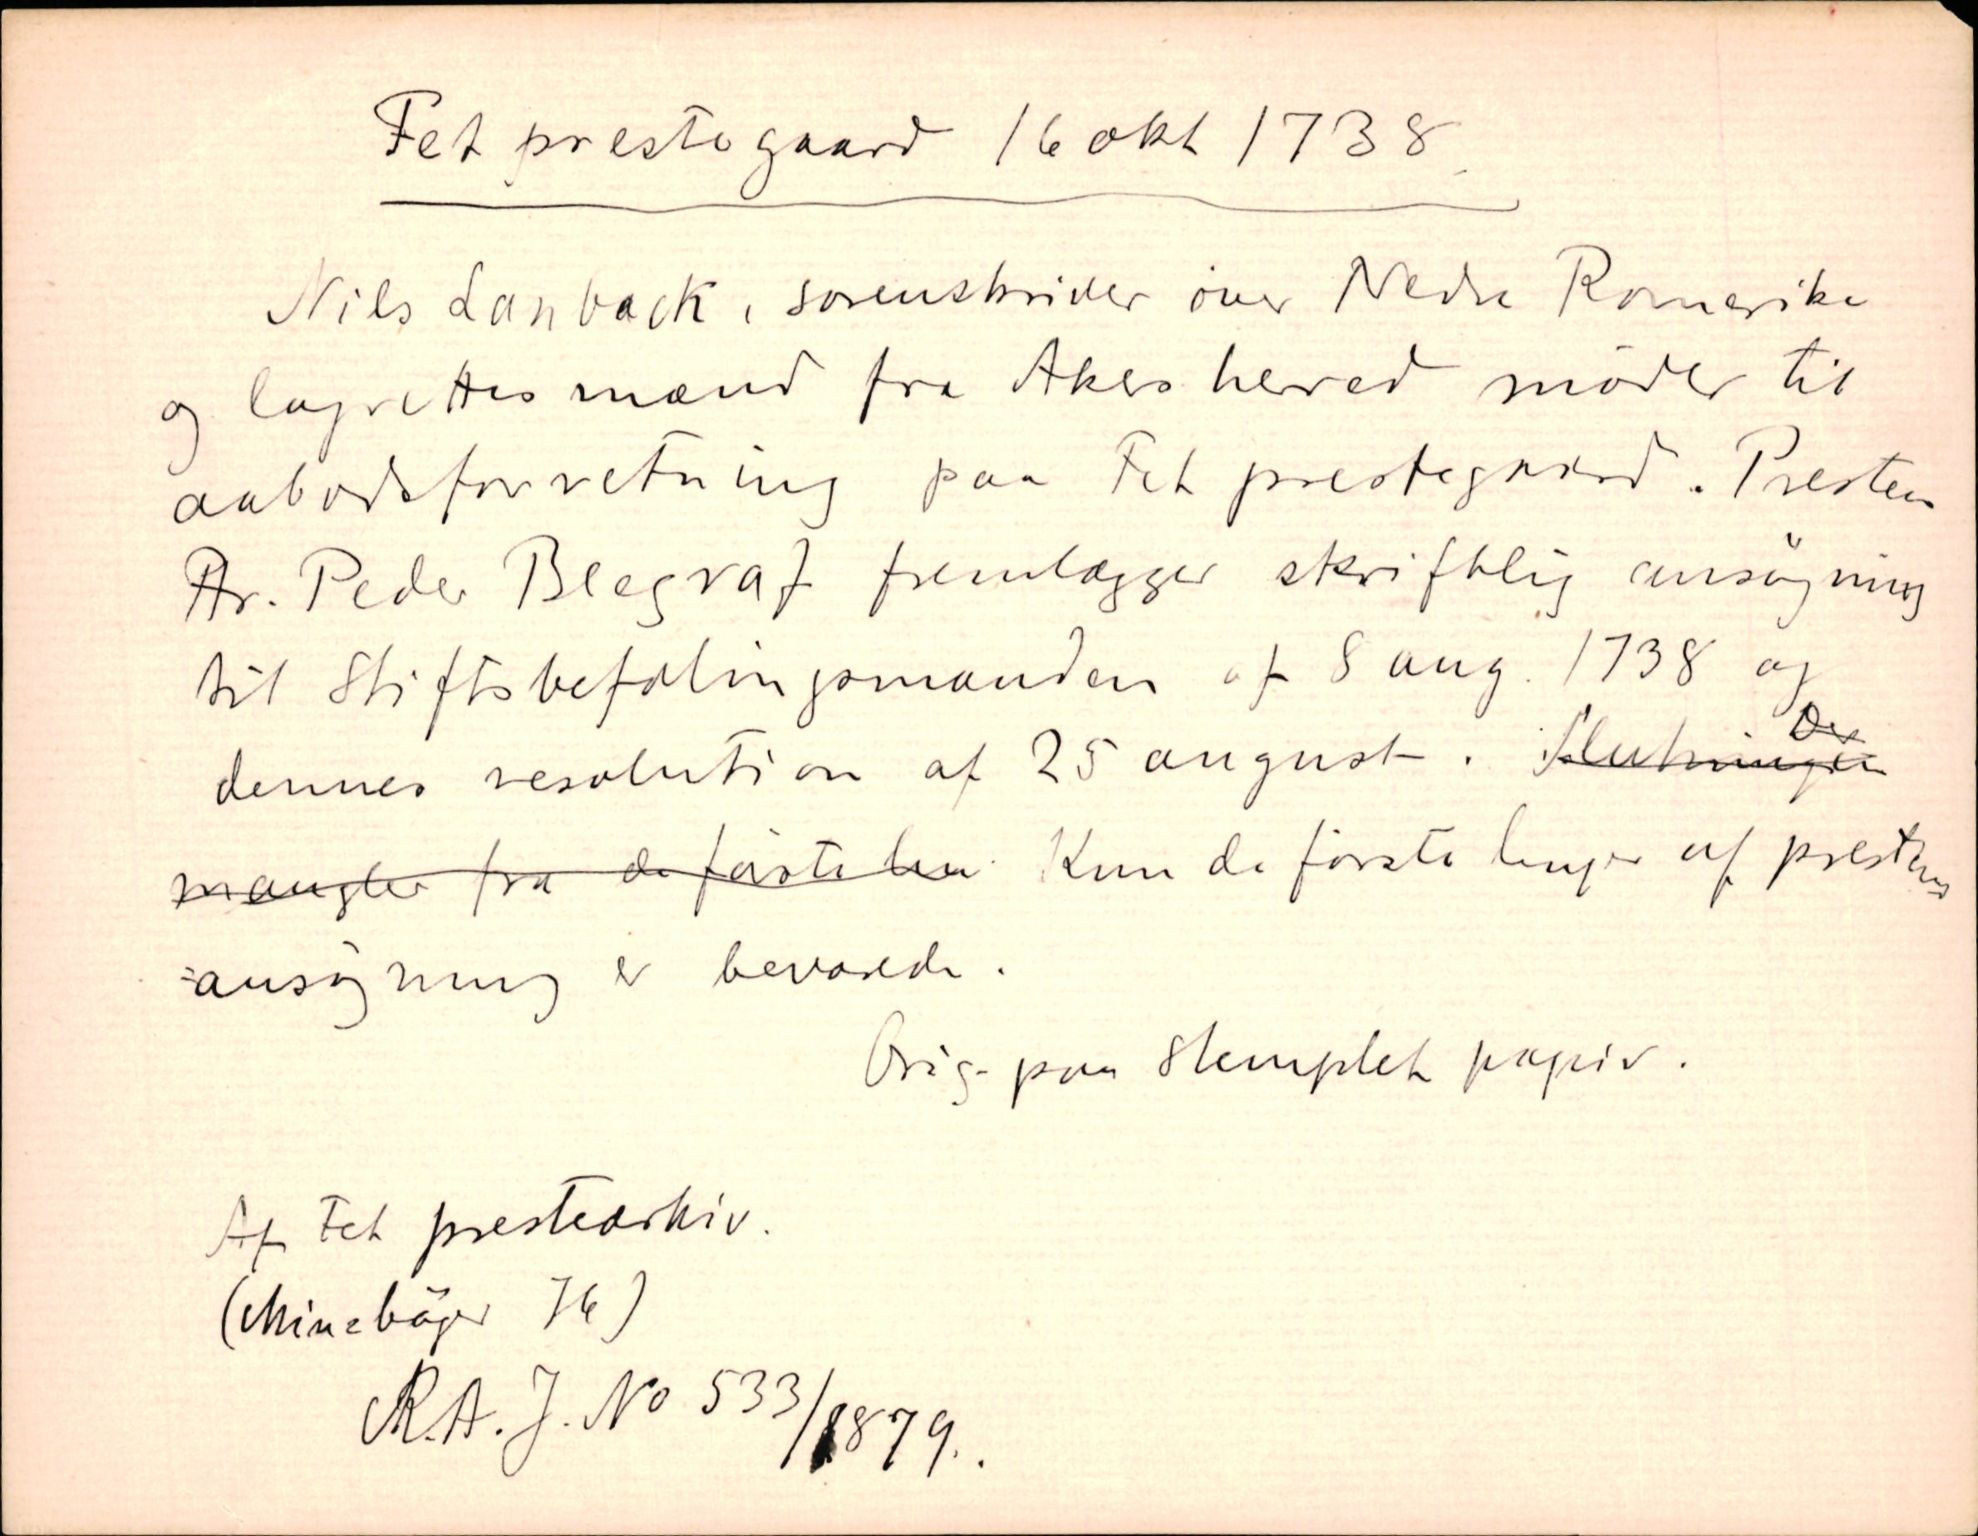 Fet prestegaard 16 okt 1738.
Nils Lanback, sorenskriver over Nedre Romerike
og lagrettesmænd fra Akers herred möder til
aabodsforretning paa Fet prestegaard. Presten
Hr. Peder Blegraf fremlægger skriftlig ansögning
til Stiftsbefalingsmanden af 8 aug. 1738 og
dennes resolution af 25 august. Slutningen
mangler fra de förste Kun de förste linjer af prestens
ansögning er bevarede.
Orig. paa stemplet papir.
Af Fet prestearkiv.
(Minebøger 76)
R.A. J. No 533/1879.